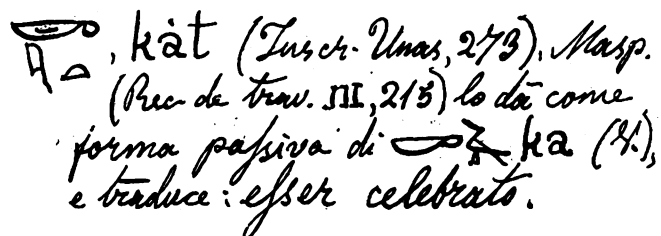 𓎡𓇋𓏏, kȧt (Inscr. Unas, 273). Masp.
(Rec. de trav. III, 215) lo dà come
forma passiva di 𓎡𓄿 ka (V.),
e traduce: esser celebrato.